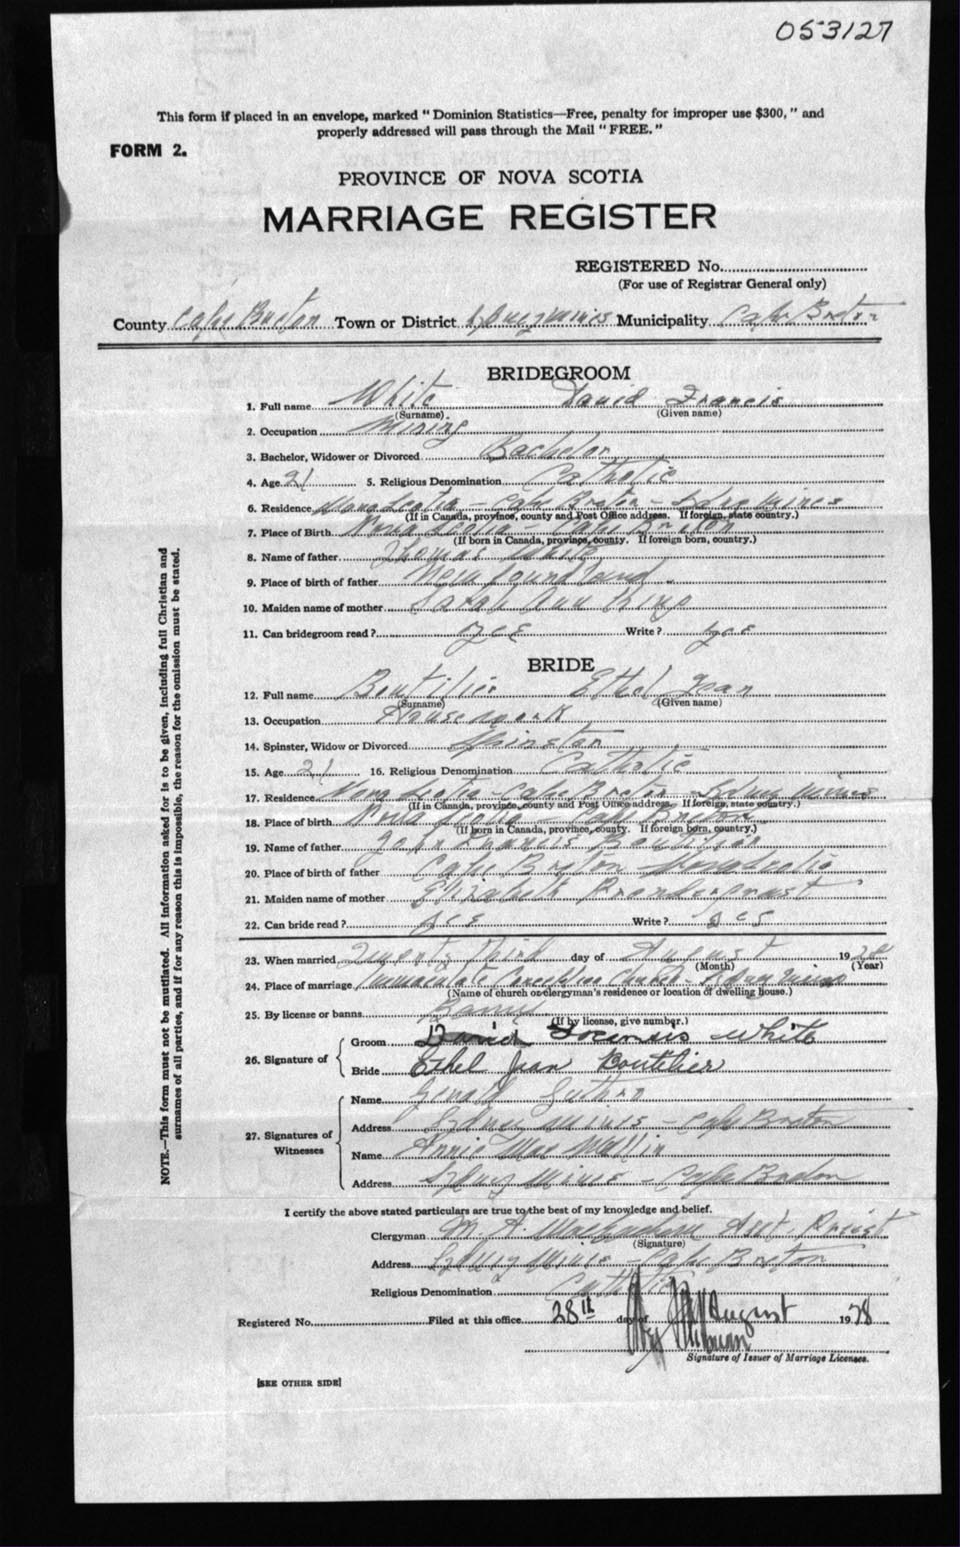 053127
This form if placed in an envelope, marked "Dominion Statistics—Free, penalty for improper use $300," and
properly addressed will pass through the Mail "FREE."
FORM 2.
PROVINCE OF NOVA SCOTIA
MARRIAGE REGISTER
REGISTERED No.
(For use of Registrar General only)
County Cape Breton Town or District Sydney Mines Municipality Cape Breton
BRIDEGROOM
1. Full name White David Francis
(Surname) (Given name)
2. Occupation Mining
3. Bachelor, Widower or Divorced Bachelor
4. Age 21 5. Religious Denomination Catholic
6. Residence Nova Scotia - Cape Breton - Sydney Mines
(If in Canada, province, county and Post Office address. If foreign, state country.)
7. Place of Birth Nova Scotia - Cape Breton
(If born in Canada, province, county. If foreign born, country.)
8. Name of father Thomas White
9. Place of birth of father Newfoundland
10. Maiden name of mother Sarah Ann King
11. Can bridegroom read? yes Write? yes
BRIDE
12. Full name Boutilier Ethel Jean
(Surname) (Given name)
13. Occupation Housework
14. Spinster, Widow or Divorced Spinster
15. Age 21 16. Religious Denomination Catholic
17. Residence Nova Scotia - Cape Breton - Sydney Mines
(If in Canada, province, county and Post Office address. If foreign, state country.)
18. Place of birth Nova Scotia - Cape Breton
(If born in Canada, province, county. If foreign born, country.)
19. Name of father John Francis Boutilier
20. Place of birth of father Cape Breton Nova Scotia
21. Maiden name of mother Elizabeth
22. Can bride read? yes Write? yes
23. When married Twenty Third day of August 1928
(Month) (Year)
24. Place of marriage Immaculate Conception Church - Sydney Mines
(Name of church or clergyman's residence or location of dwelling house.)
25. By license or banns Banns
(If by license, give number.)
26. Signature of
Groom David Francis White
Bride Ethel Jean Boutilier
27. Signatures of Witnesses
Name Gerald
Address Sydney Mines - Cape Breton
Name Annie Mac
Address Sydney Mines - Cape Breton
I certify the above stated particulars are true to the best of my knowledge and belief.
Clergyman M. A. Asst. Priest
(Signature)
Address Sydney Mines Cape Breton
Religious Denomination Catholic
Registered No. Filed at this office 28th day of August 1928
Signature of Issuer of Marriage Licenses.
[SEE OTHER SIDE]
NOTE.—This form must not be mutilated. All information asked for is to be given, including full Christian and
surnames of all parties, and if for any reason this is impossible, the reason for the omission must be stated.